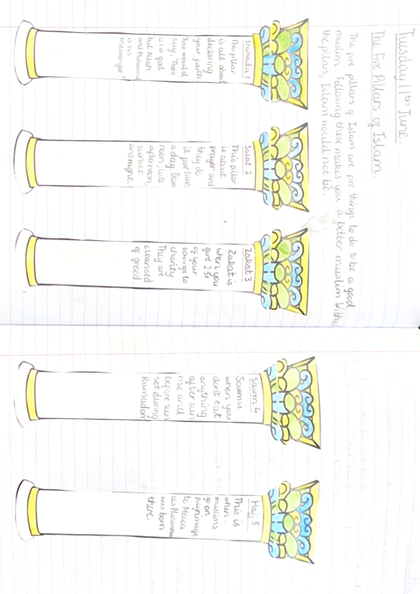 Tuesday 11th June
The Five Pillars of Islam
The five pillars of Islam are five things to do to be a good
muslim. Following these makes you a better muslim.
the pillars, Islam would not be.
Shahada 1
The pillar
is all about
declaring
your faith
You would
say, There
is no god
but Allah
and
is his
messenger
Salat 2
This pillar
is about
prayer and
they do
it five times
a day, Dawn
noon, late
afternoon,
sunset
and night.
Zakat 3
Zakat is
when you
give 2.5%
of your
savings to
charity
They are
cleansed
of greed.
Sawm 4
Sawm is
when you
dont eat
anything
after sun
rise and
before sun
set during
Ramadan
Hajj 5
This is
when
muslims
go on
pilgrimage
to Mecca
as
was born
there.